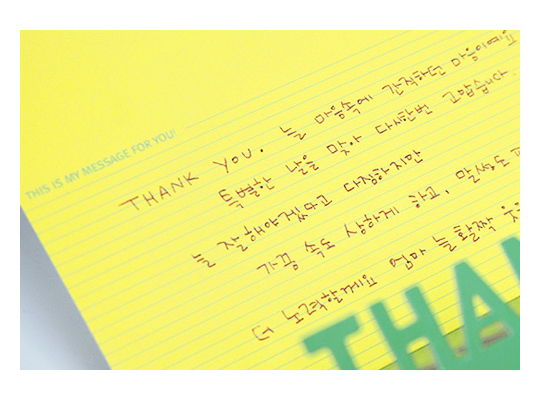 THIS IS MY MESSAGE FOR YOU!
THANK YOU. 늘 마음속에 간직하던 마음이예요
특별한 날을 맞아 다시한번 고맙습니다.
늘 잘해야겠다고 다짐하지만
가끔 속도 상하게 하고, 말썽도
더 노력할게요 엄마 늘 활짝
THAN